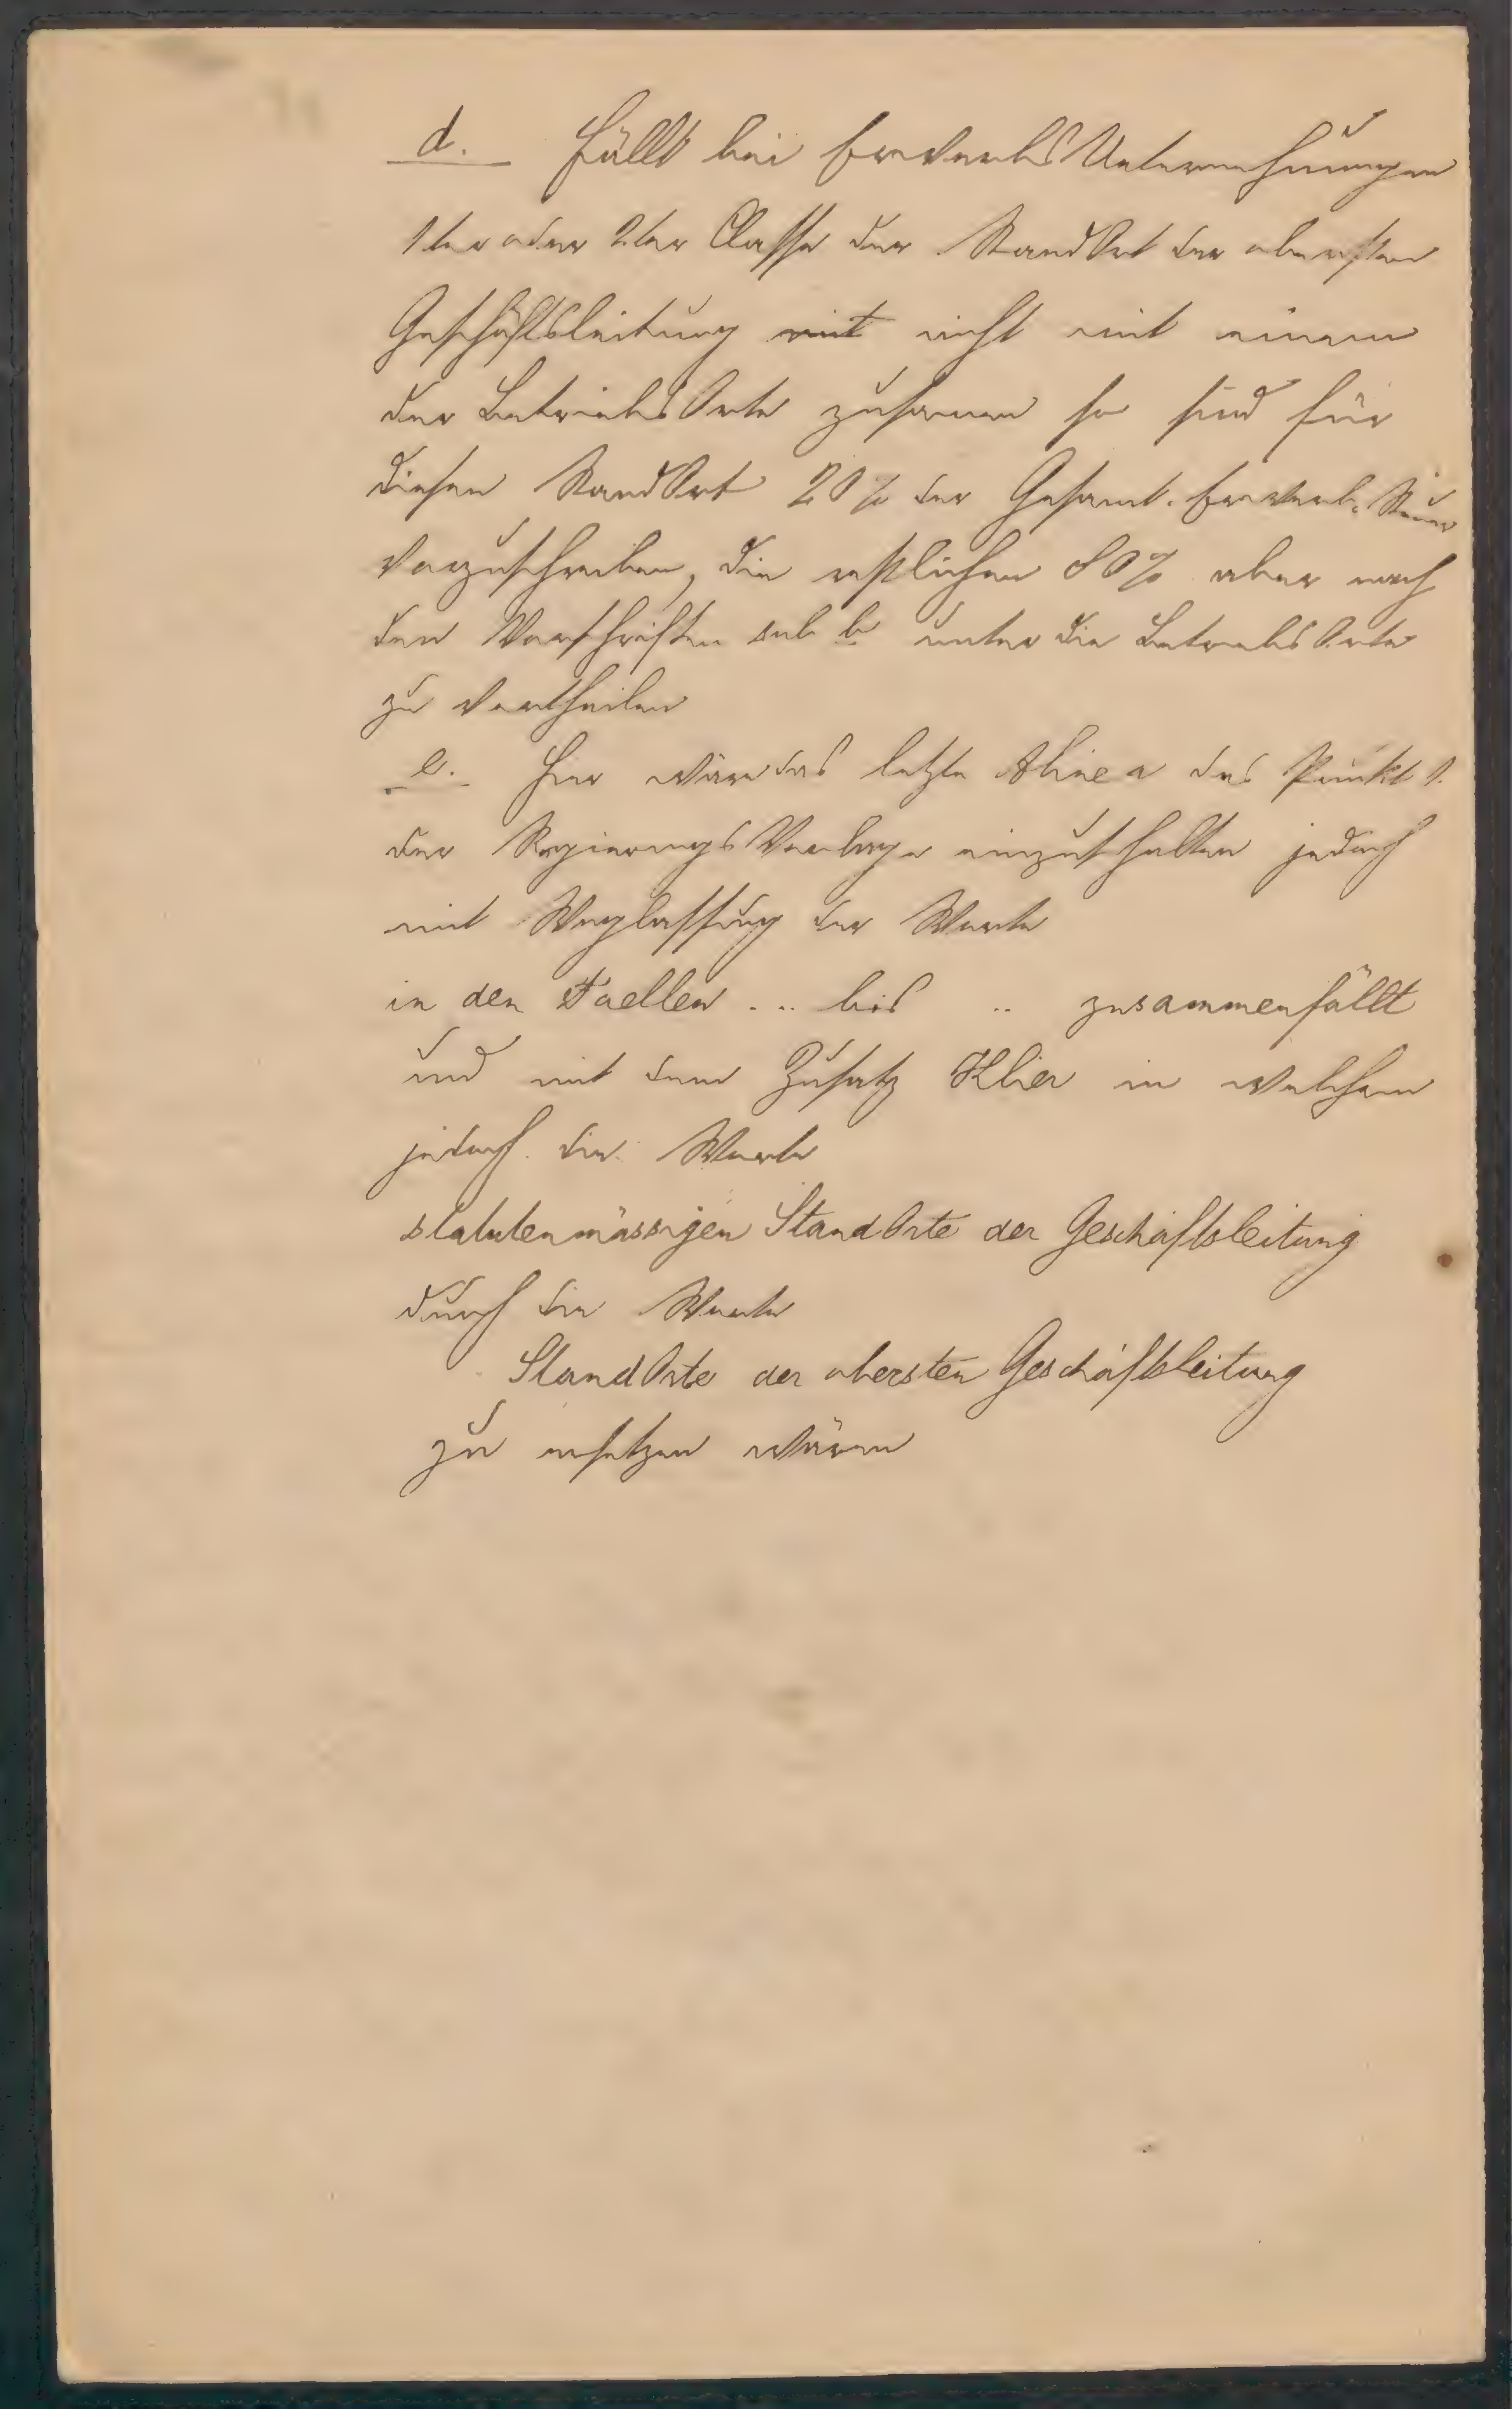 d. Fällt bei Erwerbs Unternehmungen
1ter oder 2ter Classe der StandOrt der obersten
Geschäftsleitung mit nicht mit einem
der BetriebsOrte zusamen so sind für
diesen StandOrt 20% der Gesamt-Erwerb-Steuer
vorzuschreiben, die restlichen 80% aber nach
den Vorschriften sub b unter die BetriebsOrte
zu vertheilen
e. Hier wäre das letzte Alinea des Punkt 1.
der RegierungsVorlage einzuschalten jedoch
mit Weglassung der Worte
in den Faellen ... bis .. zusammenfällt
und mit dem Zusatz Klier in welchem
jedoch die Worte
statutenmässigen StandOrte der Geschäftsleitung
durch die Worte
StandOrte der obersten Geschäftsleitung
zu ersetzen wären